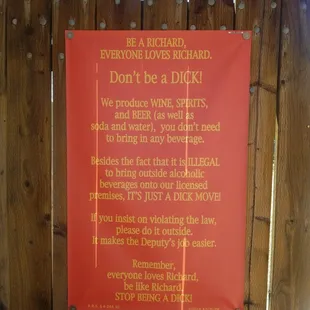 BE A RICHARD,
EVERYONE LOVES RICHARD.
Don't be a DICK!
We produce WINE, SPIRITS,
and BEER (as well as
soda and water), you don't need
to bring in any beverage.
Besides the fact that it is ILLEGAL
to bring outside alcoholic
beverages onto our licensed
premises, IT'S JUST A DICK MOVE!
if you insist on violating the law,
please do it outside.
It makes the Deputy's job easier.
Remember,
everyone loves Richard.
be like Richard.
STOP BEING A DICK!